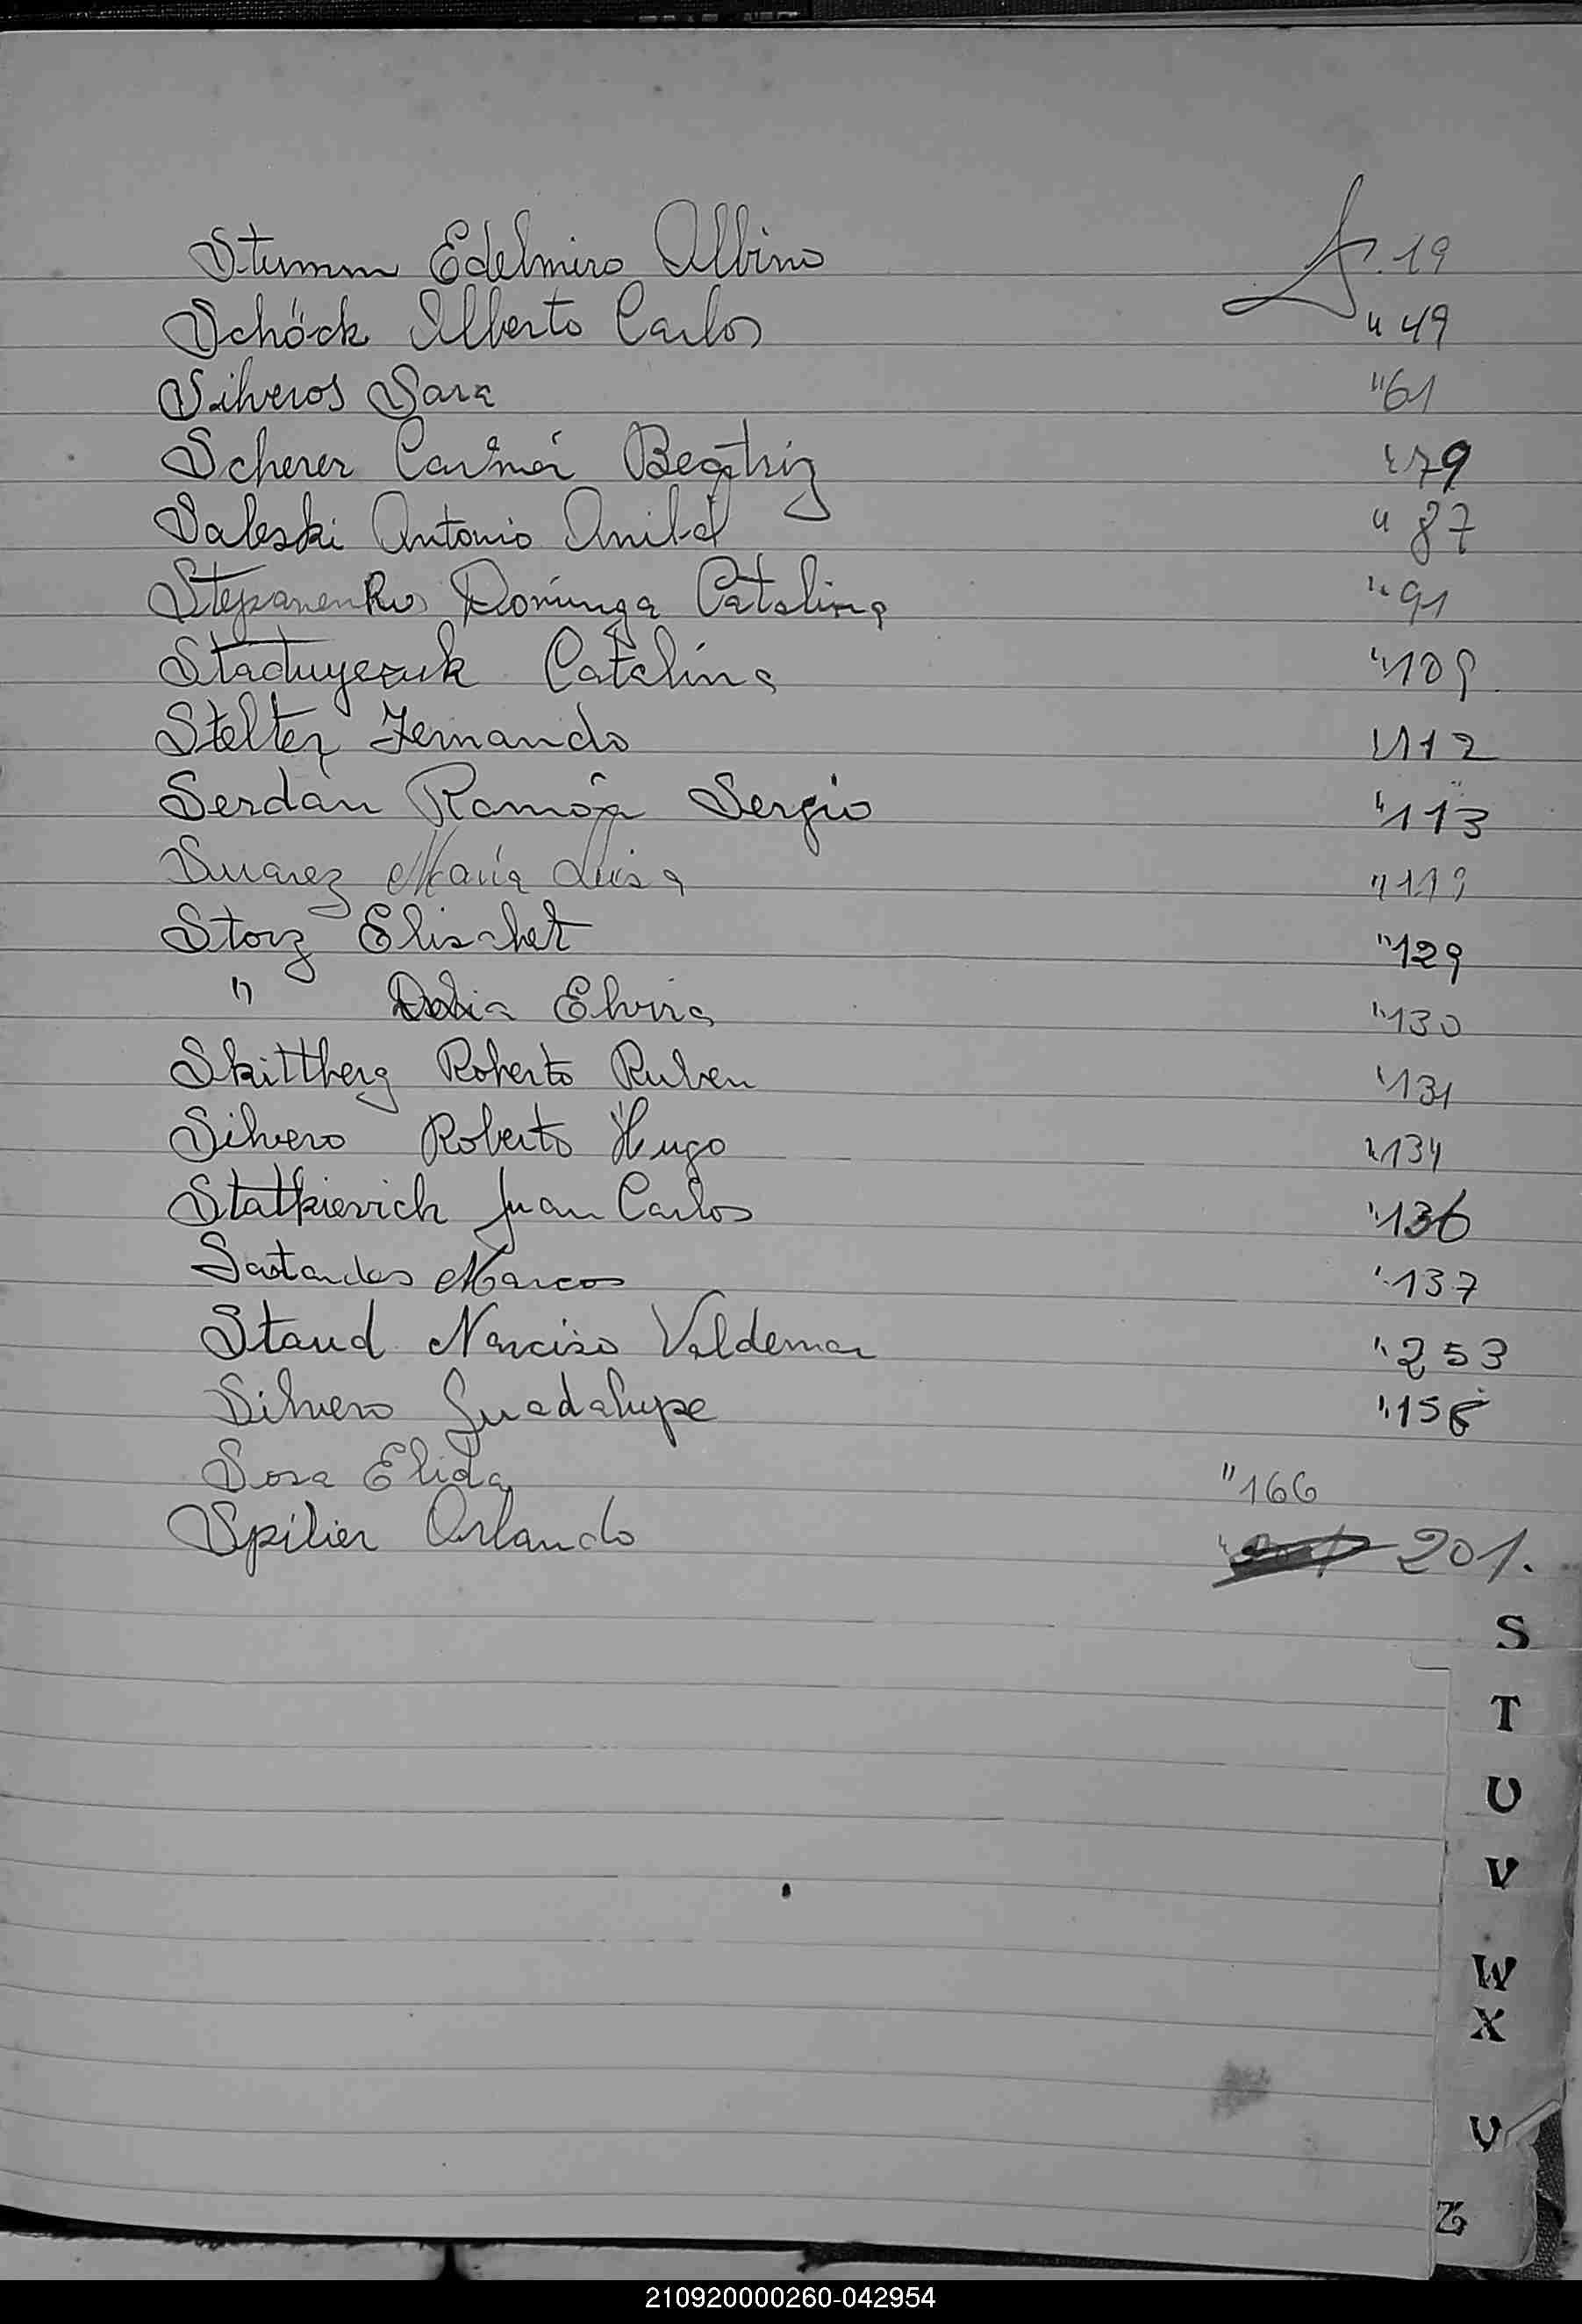 Stumm Edelmiro Albino F. 19
Schöck Alberto Carlos " 49
Silveros Sara " 61
Scherer Carmen Beatriz " 79
Saleski Antonio Anibal " 87
Stepanenko Dominga Catalina " 91
Catalina " 109
Stelter Fernando " 112
Serdán Ramón Sergio " 113
Suarez María Luisa " 119
Storz Elisabet " 129
" Delia Elvira " 130
Skittberg Roberto Ruben " 131
Silvero Roberto Hugo " 134
Statkievich Juan Carlos " 136
Marcos " 137
Staud Narciso Valdemar " 253
Silvero Guadalupe " 158
Sosa Elida " 166
Spilier Orlando 201.
S
T
U
V
W
X
Z
210920000260-042954